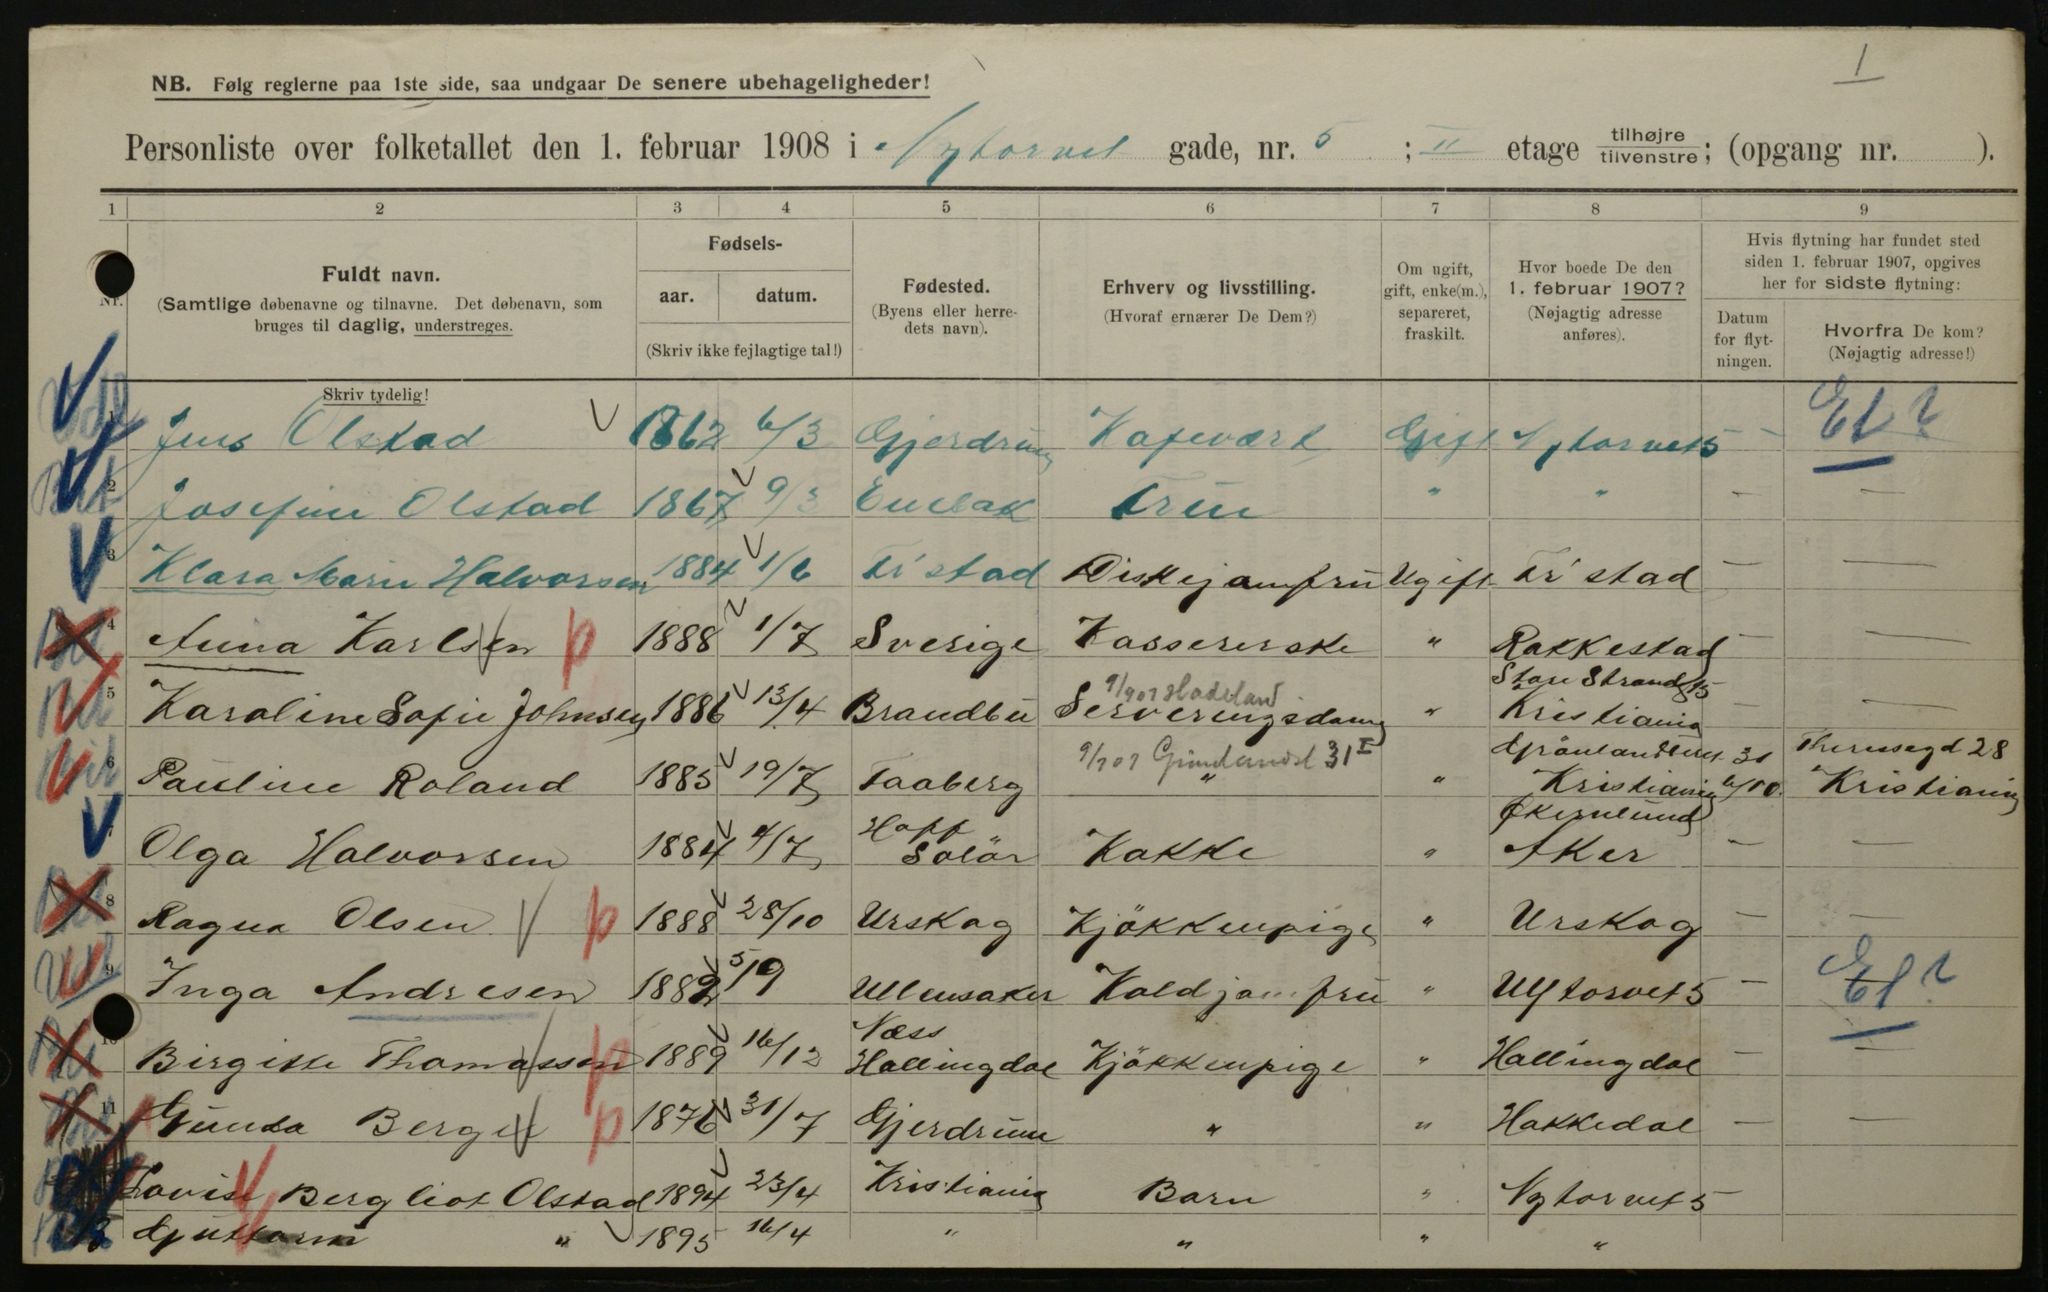 1
NB. Følg reglerne paa 1ste side, saa undgaar De senere ubehageligheder!
Personliste over folketallet den 1. februar 1908 i Nytorvet gade, nr. 5 ; II etage tilhøjre tilvenstre; (opgang nr. ).
1 2 3 4 5 6 7 8 9
Nr.
Fuldt navn.
(Samtlige døbenavne og tilnavne. Det døbenavn, som
bruges til daglig, understreges.
Skriv tydelig!
Fødsels-
aar. datum.
(Skriv ikke fejlagtige tal!)
Fødested.
(Byens eller herre-
dets navn).
Erhverv og livsstilling.
(Hvoraf ernærer De Dem?)
Om ugift,
gift, enke(m.),
separeret,
fraskilt.
Hvor boede De den
1. februar 1907?
(Nøjagtig adresse
anføres).
Hvis flytning har fundet sted
siden 1. februar 1907, opgives
her for sidste flytning:
Datum
for flyt-
ningen.
Hvorfra De kom?
(Nøjagtig adresse!)
1 Jens Olstad 1862 6/3 Gjerdrum Kafevært Gift Nytorvet 5 –
2 Josefine Olstad 1867 9/3 Enebak Frue " " – –
3 Klara Marie Halvorsen 1884 1/6 Fr'stad Diskejomfru Ugift Fr'stad – –
4 Anna Karlsen p 1888 1/7 Sverige Kassererske " Rakkestad – –
9/707 Hadeland Store Strandg 15
5 Karoline Sofie Johnsen 1886 13/4 Brandbu Serveringsdame " Kristiania – –
9/707 Grønlandsl 31 I 31 Theresegd 28
6 Pauline Roland 1885 19/7 Faaberg " " Kristiania 6/10. Kristiania
Hoff Økernlund
7 Olga Halvorsen 1884 4/7 Solør Kokke " Aker – –
8 Ragna Olsen p 1888 28/10 Urskog Kjøkkenpige " Urskog – –
9 Inga Andresen 1882 5/9 Ullensaker Koldjomfru " Nytorvet 5 –
Næss
10 Birgitte Thomassen p 1889 16/12 Hallingdal Kjøkkenpige " Hallingdal – –
11 Gunda Berge p 1876 31/7 Gjerdrum " " Hakkedal – –
Lovise Bergliot Olstad 1894 23/4 Kristiania Barn " Nytorvet 5
Guttorm " 1895 16/4 " " " "